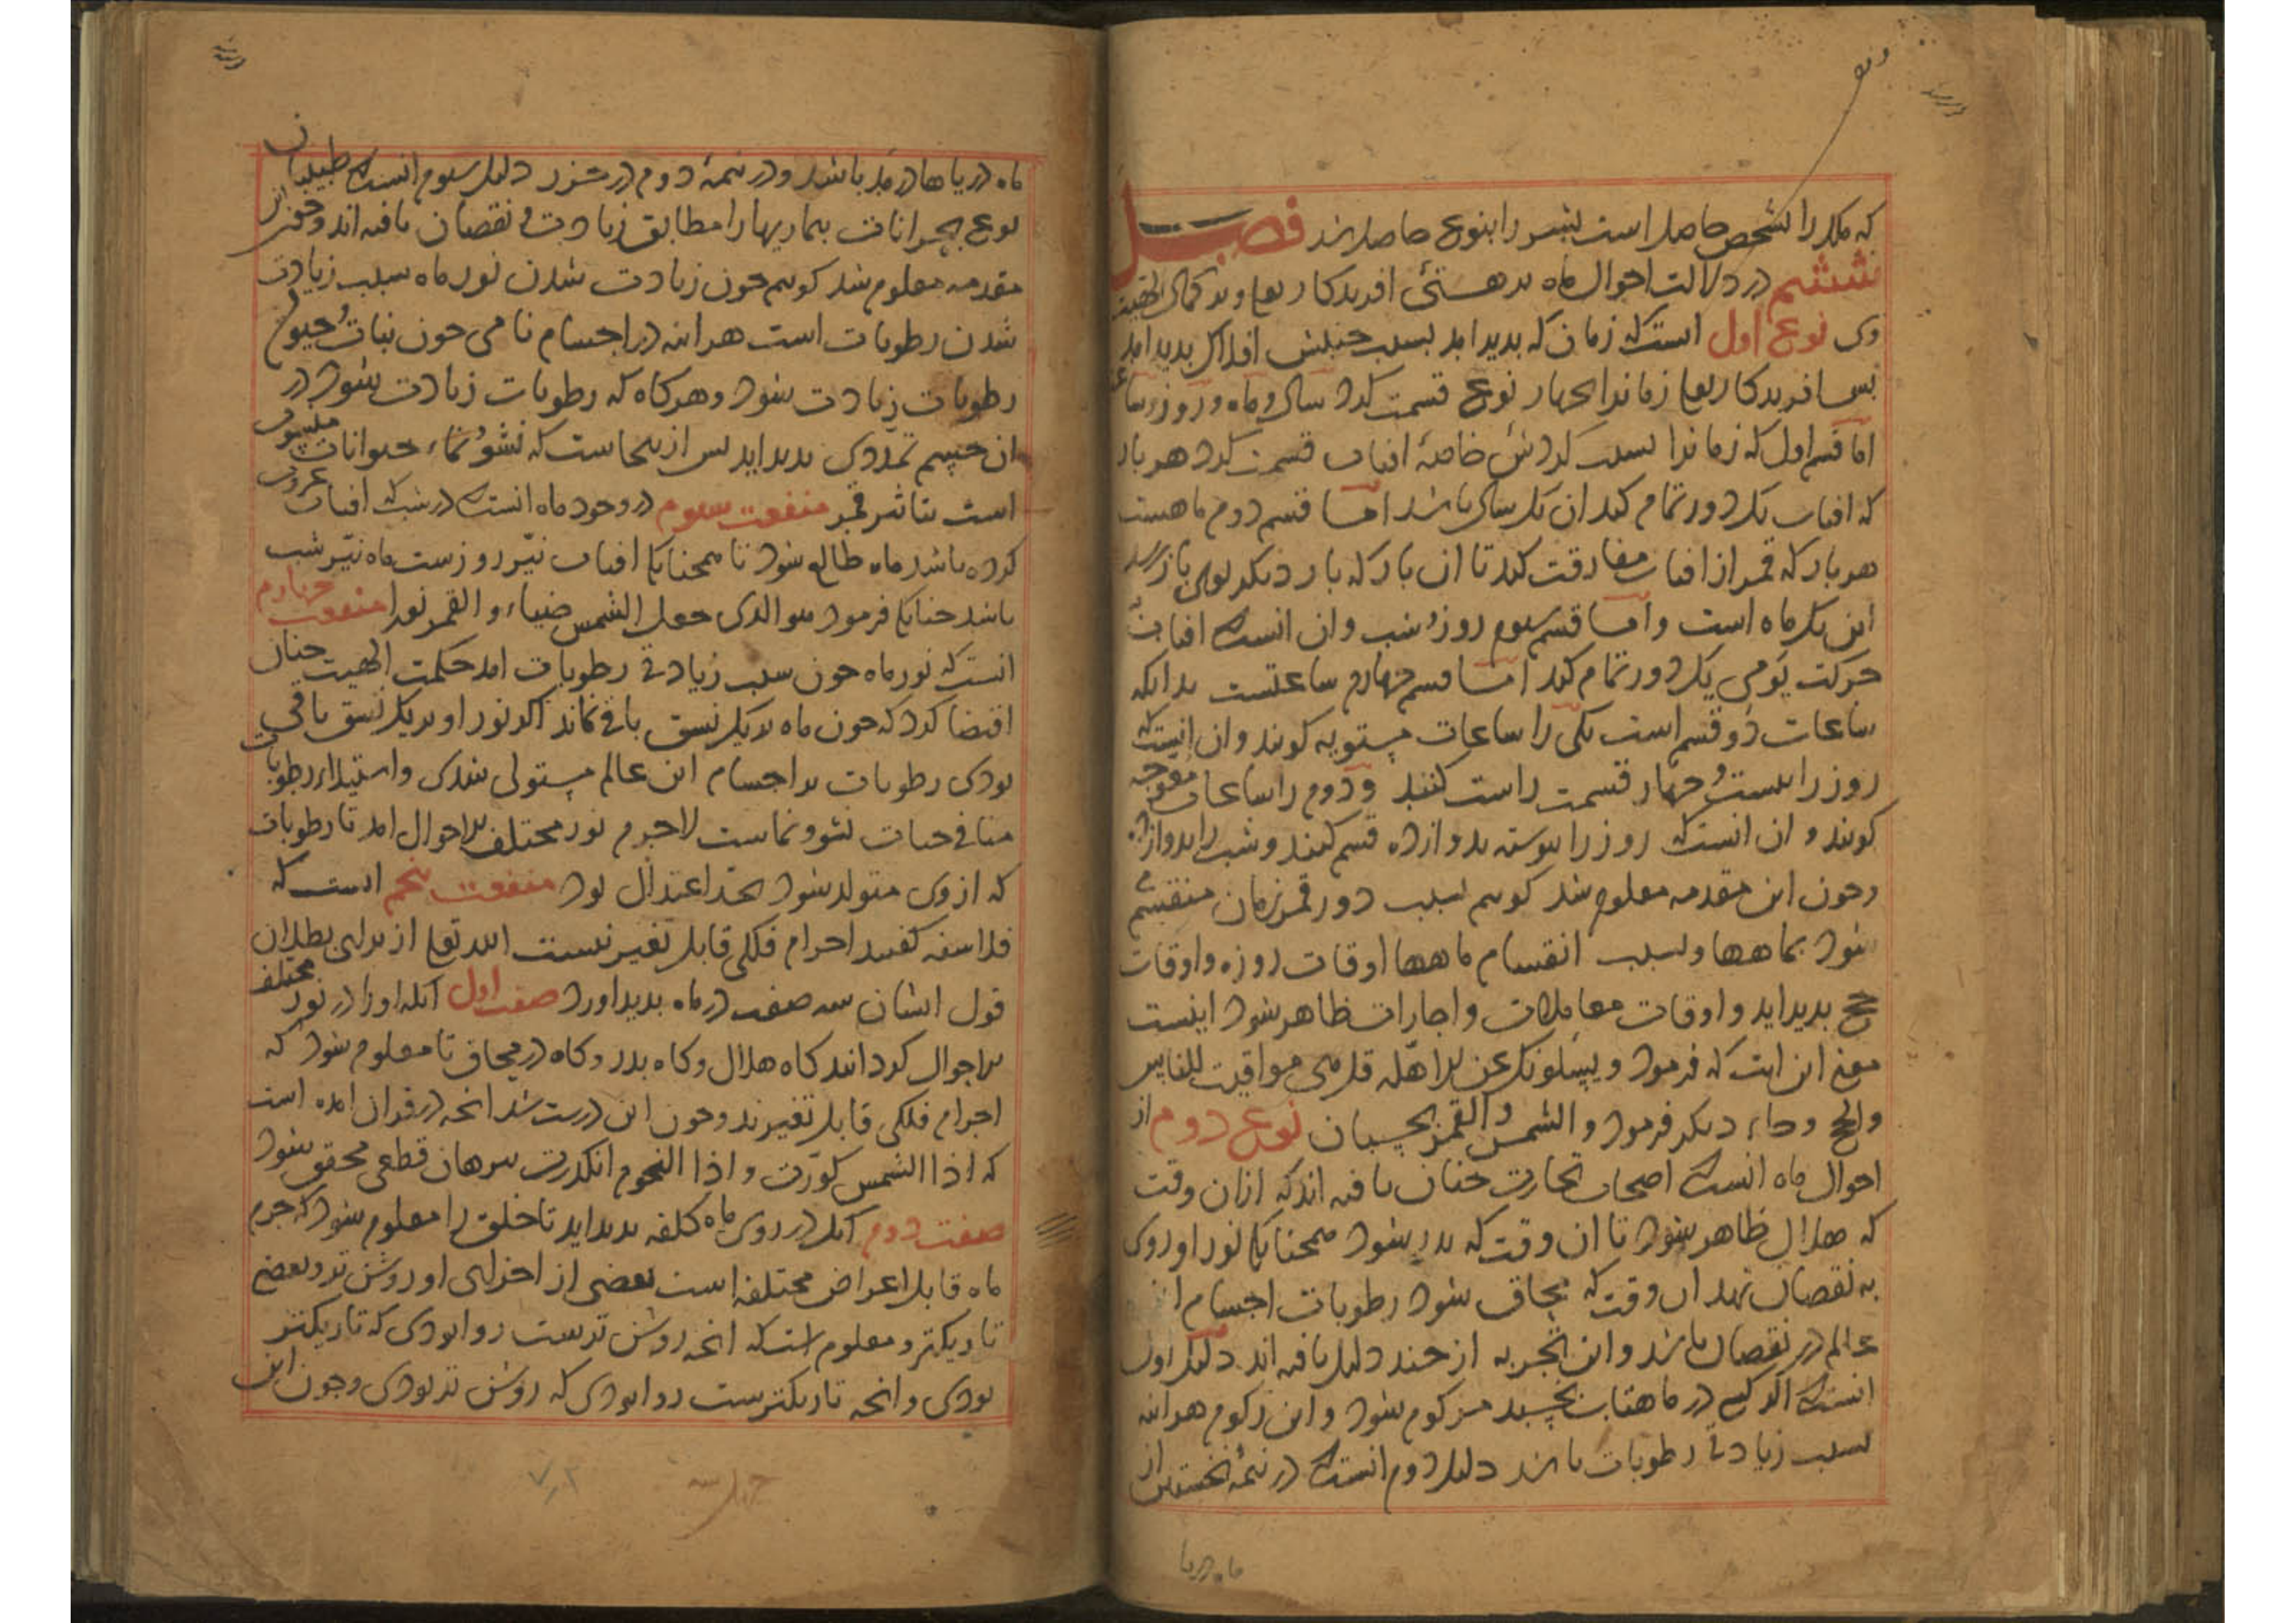 که ملک را بشخص حاصل است بشر را بنوع حاصل اند فصل
ششم در دلالت احوال ماه بر هستی افریدکار تعا و بر کمال الهیت
وی نوع اول است که زمان که بدید امد بسبب جنبش افلاک بدید امد
بس افریدکار تعا زمانرا بجهار نوع قسمت کرد سال و ماه و روز و ساعت
اما قسم اول که زمانرا بسبب کردش خاصهٔ افتاب قسمت کرد هر بار
که افتاب یک دور تمام کند ان یک سال باشد اما قسم دوم ماهست
هر بار که قمر از افتاب مفارقت کند تا ان بار که بار دیکر بوی باز رسد
این یک ماه است و اما قسم سیوم روز و شب و ان انست که افتاب
حرکت یومی یک دور تمام کند اما قسم چهارم ساعتست بدانکه
ساعات دو قسم است یکی را ساعات مستویه کویند و ان انست که
روز را بیست و جهار قسمت راست کنند و دوم را ساعات معوجه
کویند و ان انست که روز را بیوسته بدوازده قسم کنند و شب را بدوازده
وجون این مقدمه معلوم شد کویم بسبب دور قمر زمان منقسم
شود بماهها و بسبب انقسام ماهها اوقات روزه و اوقات
حج بدید اید و اوقات معاملات و اجارات ظاهر شود اینست
معنی این ایت که فرمود و یسلونک عن الاهله قل هی مواقیت للناس
والحج و جاء دیکر فرمود والشمس والقمر بحسبان نوع دوم از
احوال ماه انست که اصحاب تجارت جنان یافته اند که ازان وقت
که هلال ظاهر شود تا ان وقت که بدر شود همجنانک نور او روی
به نقصان نهد ان وقت که محاق شود رطوبات اجسام این
عالم در نقصان باشد و این تجربه از جند دلیل یافته اند دلیل اول
انست که اکر کسی در ماهتاب بخسبد مزکوم شود و این زکوم هراینه
بسبب زیادتی رطوبات باشد دلیل دوم انست که در نیمهٔ نخستین از
ماه دریا
ماه دریاها در مد باشد و در نیمهٔ دوم در جزر دلیل سیوم انست که طبیبان
نوع بحرانات بیماریها را مطابق زیادت و نقصان یافته اند وجون این
مقدمه معلوم شد کویم جون زیادت شدن نور ماه سبب زیادت
شدن رطوبات است هراینه در اجسام نامی جون نبات و حیوان
رطوبات زیادت شود و هرکاه که رطوبات زیادت شود در
ان جسم تمددی بدید اید بس ازینجاست که نشو و نماء حیوانات منسوب
است بتاثیر قمر منفعت سیوم در وجود ماه انست که در شب که افتاب غروب
کرده باشد ماه طالع شود تا همجنانک افتاب نیّر روزست ماه نیّر شب
باشد جنانک فرمود هو الذی جعل الشمس ضیاء والقمر نورا منفعت چهارم
انست که نور ماه جون سبب زیادتی رطوبات امد حکمت الهیت جنان
اقتضا کرد که جون ماه بر یک نسق باقی نماند اکر نور او بر یک نسق باقی
بودی رطوبات بر اجسام این عالم مستولی شدی و استیلاء رطوبات
منافی حیات نشو و نماست لاجرم نور مختلف الاحوال امد تا رطوبات
که از وی متولد شود بحد اعتدال بود منفعت پنجم انست که
فلاسفه کفتند اجرام فلکی قابل تغیر نیست ایزد تعا از برای بطلان
قول ایشان سه صفت در ماه بدید اورد صفت اول انکه او را در نور مختلف
الاحوال کردانید کاه هلال و کاه بدر و کاه در محاق تا معلوم شود که
اجرام فلکی قابل تغیرند وجون این درست شد انجه در قران امده است
که اذا الشمس کورت و اذا النجوم انکدرت ببرهان قطعی محقق شود
صفت دوم انک در روی ماه کلفه بدید اید تا خلق را معلوم شود که جرم
ماه قابل اعراض مختلفه است بعضی از اجزای او روشن تر و بعضی
تاریکتر و معلوم است که انجه روشن ترست روا بودی که تاریکتر
بودی و انجه تاریکترست روا بودی که روشن تر بودی وجون این